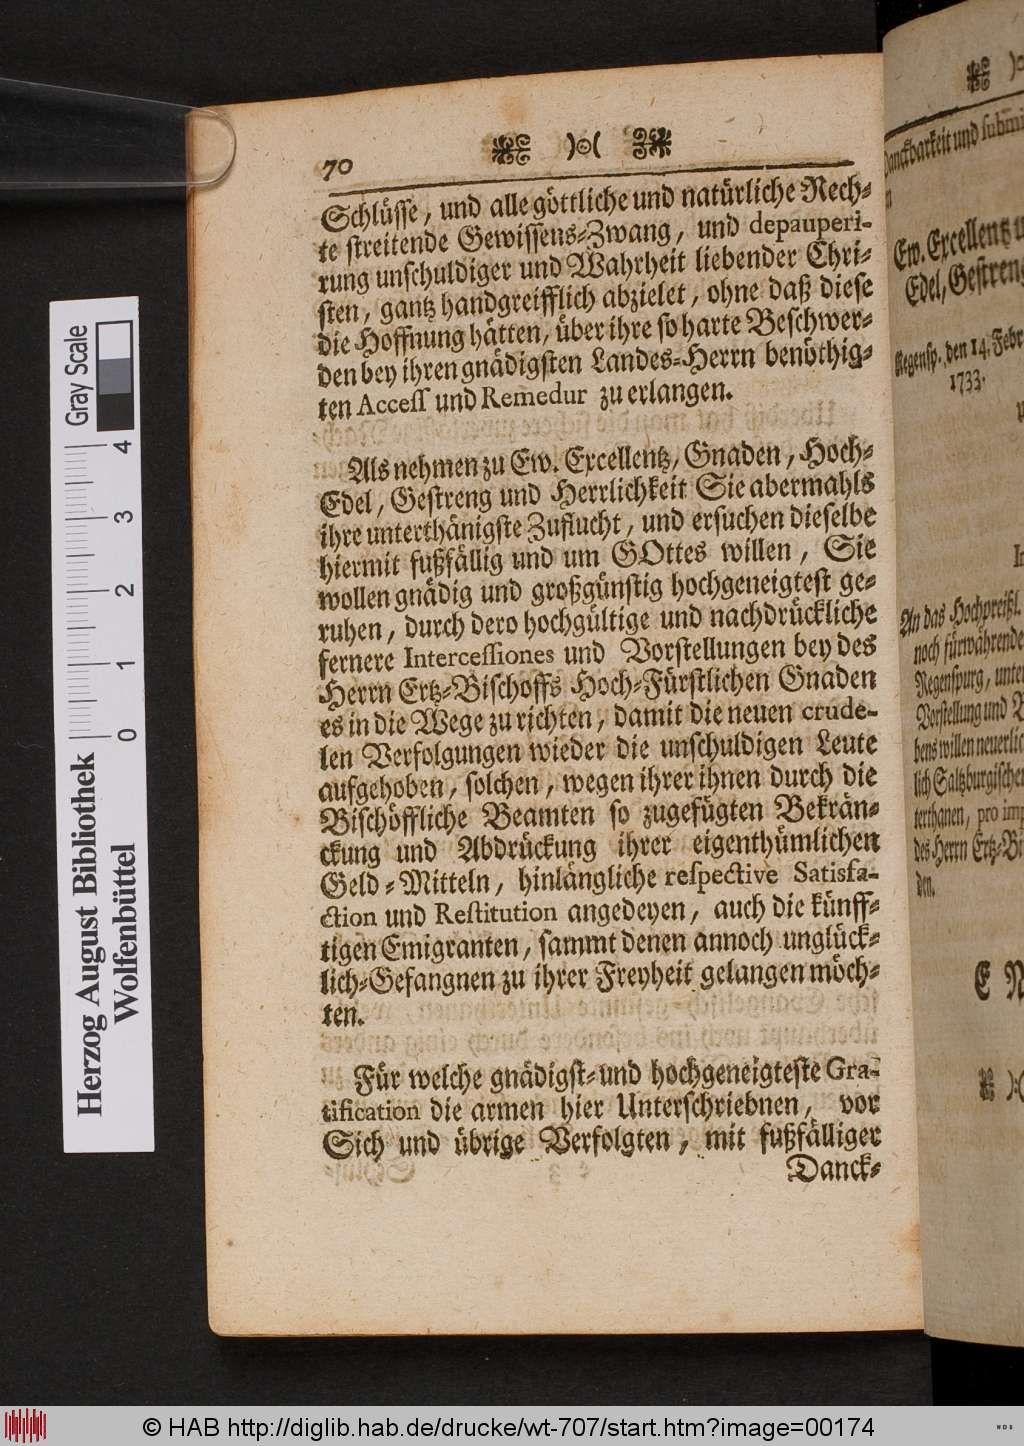 70 )o(
Schlüsse, und alle göttliche und natürliche Rech-
te streitende Gewissens-Zwang, und depauperi-
rung unschuldiger und Wahrheit liebender Chri-
sten, gantz handgreifflich abzielet, ohne daß diese
die Hoffnung hätten, über ihre so harte Beschwer-
den bey ihren gnädigsten Landes-Herrn benöthig-
ten Access und Remedur zu erlangen.
Als nehmen zu Ew. Excellentz, Gnaden, Hoch-
Edel, Gestreng und Herrlichkeit Sie abermahls
ihre unterthänigste Zuflucht, und ersuchen dieselbe
hiermit fußfällig und um GOttes willen, Sie
wollen gnädig und großgünstig hochgeneigtest ge-
ruhen, durch dero hochgültige und nachdrückliche
fernere Intercessiones und Vorstellungen bey des
Herrn Ertz-Bischoffs Hoch-Fürstlichen Gnaden
es in die Wege zu richten, damit die neuen crude-
len Verfolgungen wieder die unschuldigen Leute
aufgehoben, solchen, wegen ihrer ihnen durch die
Bischöffliche Beamten so zugefügten Bekrän-
ckung und Abdrückung ihrer eigenthümlichen
Geld-Mitteln, hinlängliche respective Satisfa-
ction und Restitution angedeyen, auch die künff-
tigen Emigranten, sammt denen annoch unglück-
lich-Gefangnen zu ihrer Freyheit gelangen möch-
ten.
Für welche gnädigst- und hochgeneigteste Gra-
tification die armen hier Unterschriebnen, vor
Sich und übrige Verfolgten, mit fußfälliger
Danck-
Danckbarkeit und
Ew. Excellentz
Edel, Gestreng
Regensp. den 14. Febr
1733.
An das Hochpreißl.
noch fürwährende
Regenspurg, unter
Vorstellung und
bens willen neuerlich
lich Saltzburgischen
terthanen, pro imp
des Herrn Ertz-Bi
den.
Gray Scale
4
3
2
1
0
Herzog August Bibliothek
Wolfenbüttel
© HAB http://diglib.hab.de/drucke/wt-707/start.htm?image=00174